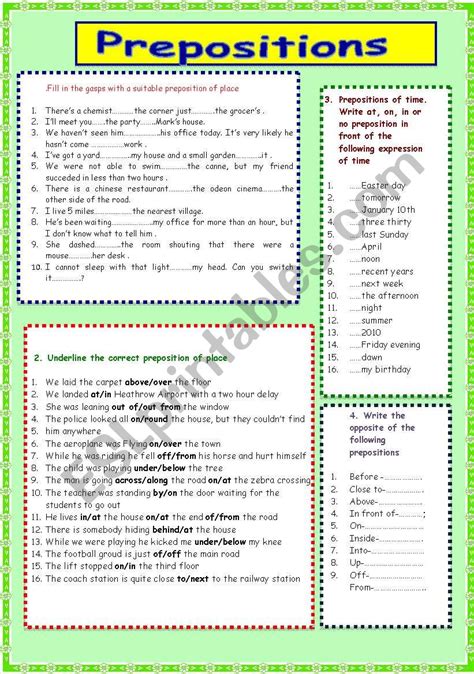 Prepositions
.Fill in the gasps with a suitable preposition of place
1. There's a chemist………..the corner just………..the grocer's .
2. I'll meet you……..the party……..Mark's house.
3. We haven't seen him…………..his office today. It's very likely he
hasn't come …………..work .
4. I've got a yard…………..my house and a small garden…………..it .
5. We were not able to swim…………..the canne, but my friend
succeded in less than two hours .
6. There is a chinese restaurant…………..the odeon cinema…………..the
other side of the road.
7. I live 5 miles…………..the nearest village.
8. He's been waiting…………..my office for more than an hour, but
I don't know what to tell him .
9. She dashed…………..the room shouting that there was a
mouse…………..her desk .
10. I cannot sleep with that light…………..my head. Can you switch
it…………..?
2. Underline the correct preposition of place
1. We laid the carpet above/over the floor
2. We landed at/in Heathrow Airport with a two hour delay
3. She was leaning out of/out from the window
4. The police looked on/round the house, but they couldn't find
5. him anywhere
6. The aeroplane was flying on/over the town
7. While he was riding he fell off/from his horse and hurt himself
8. The child was playing under/below the tree
9. He was going across/along the road on/at the zebra crossing
10. The teacher was standing by/on the door waiting for the
students to go out
11. He lives in/at the house on/at the end of/from the road
12. There is somebody hiding behind/at the house
13. While we were playing he kicked me under/below my knee
14. The football groud is just of/off the main road
15. The lift stopped on/in the third floor
16. The coach station is quite close to/next to the railway station
3. Prepositions of time.
Write at, on, in or
no preposition in
front of the
following expression
of time
1. ……Easter day
2. ……tomorrow
3. ……January 10th
4. ……three thirty
5. ……last Sunday
6. ……April
7. ……noon
8. ……recent years
9. ……next week
10. ……the afternoon
11. ……night
12. ……summer
13. ……2010
14. ……Friday evening
15. ……dawn
16. ……my birthday
4. Write the
opposite of the
following
prepositions
1. Before -………………
2. Close to-………………
3. Above-………………
4. In front of-………………;
5. On-………………
6. Inside-………………
7. Into-………………
8. Up-………………
9. Off-………………
From-………………..
ESLprintables.com